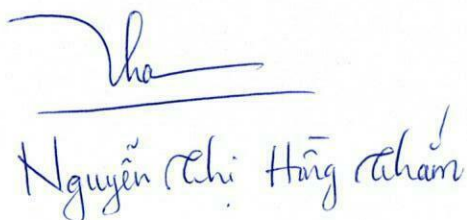 Tha
Nguyễn Thị Hồng Thắm